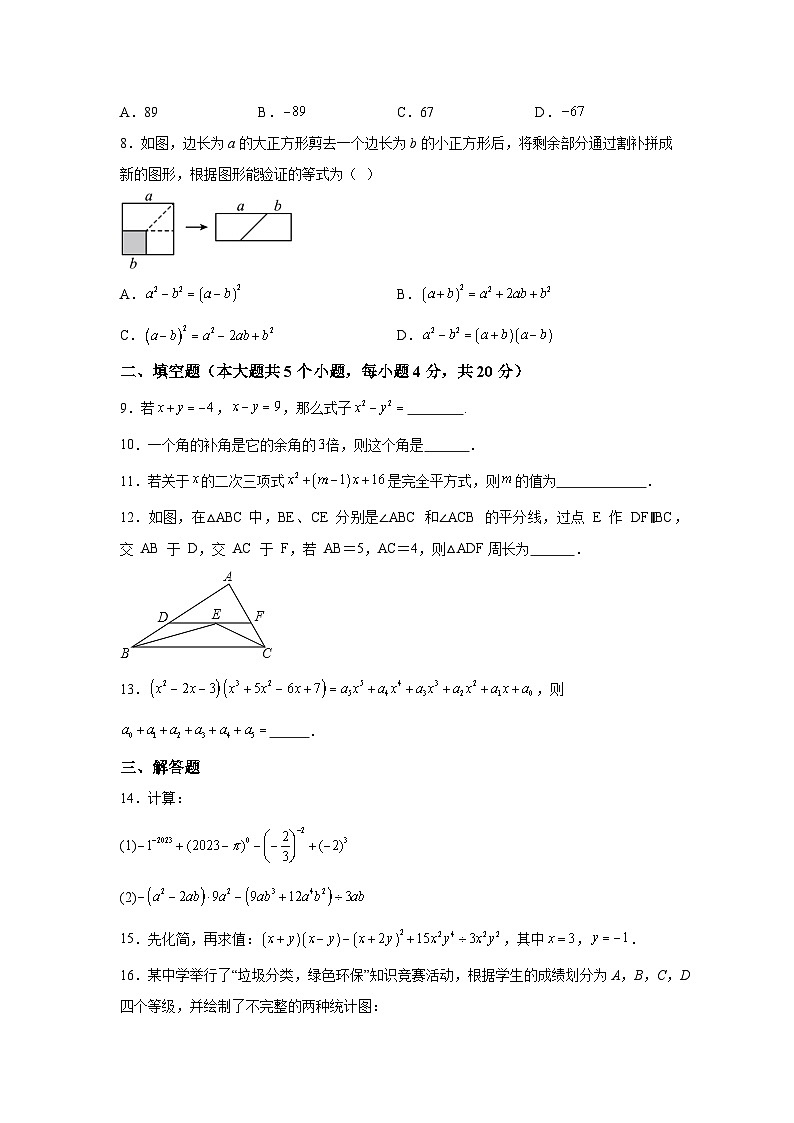 A．89 B．−89 C．67 D．−67
8．如图，边长为a的大正方形剪去一个边长为b的小正方形后，将剩余部分通过割补拼成
新的图形，根据图形能验证的等式为（ ）
a
a b
b
A．a²−b²=(a−b)² B．(a+b)²=a²+2ab+b²
C．(a−b)²=a²−2ab+b² D．a²−b²=(a+b)(a−b)
二、填空题（本大题共5个小题，每小题4分，共20分）
9．若x+y=−4，x−y=9，那么式子x²−y²=________.
10．一个角的补角是它的余角的3倍，则这个角是______．
11．若关于x的二次三项式x²+(m−1)x+16是完全平方式，则m的值为_____________．
12．如图，在△ABC 中，BE、CE 分别是∠ABC 和∠ACB 的平分线，过点 E 作 DF∥BC，
交 AB 于 D，交 AC 于 F，若 AB＝5，AC＝4，则△ADF周长为______．
A
D E F
B C
13．(x²−2x−3)(x³+5x²−6x+7)=a₅x⁵+a₄x⁴+a₃x³+a₂x²+a₁x+a₀，则
a₀+a₁+a₂+a₃+a₄+a₅=______．
三、解答题
14．计算：
(1)−1⁻²⁰²³+(2023−π)⁰−(−2/3)⁻²+(−2)³
(2)−(a²−2ab)·9a²−(9ab³+12a⁴b²)÷3ab
15．先化简，再求值：(x+y)(x−y)−(x+2y)²+15x²y⁴÷3x²y²，其中x=3，y=−1．
16．某中学举行了“垃圾分类，绿色环保”知识竞赛活动，根据学生的成绩划分为A，B，C，D
四个等级，并绘制了不完整的两种统计图：